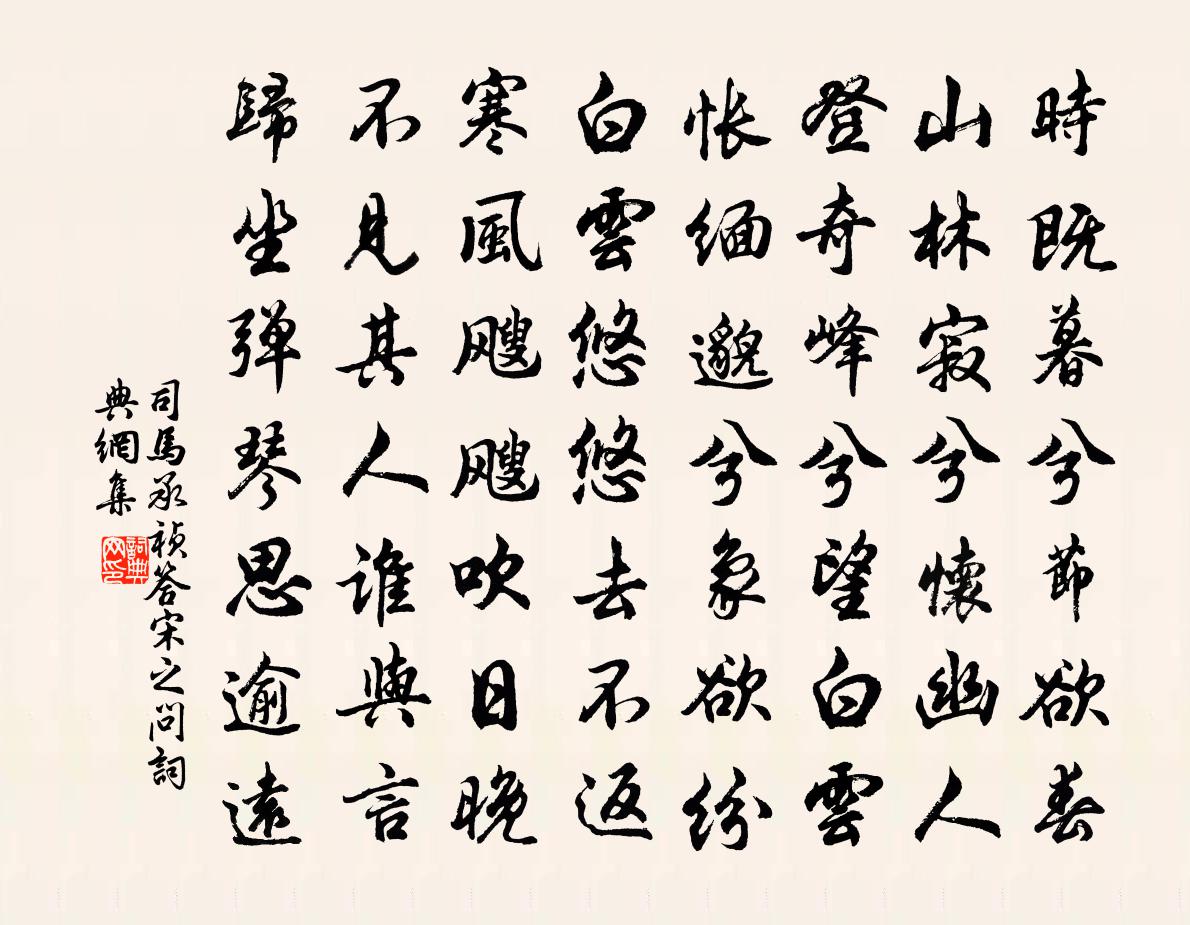 時既暮兮節欲春
山林寂兮懷幽人
登奇峰兮望白雲
悵緬邈兮象欲紛
白雲悠悠去不返
寒風颼颼吹日晚
不見其人誰與言
歸坐彈琴思逾遠
司馬承禎答宋之問詞
典網集
詞典
网印